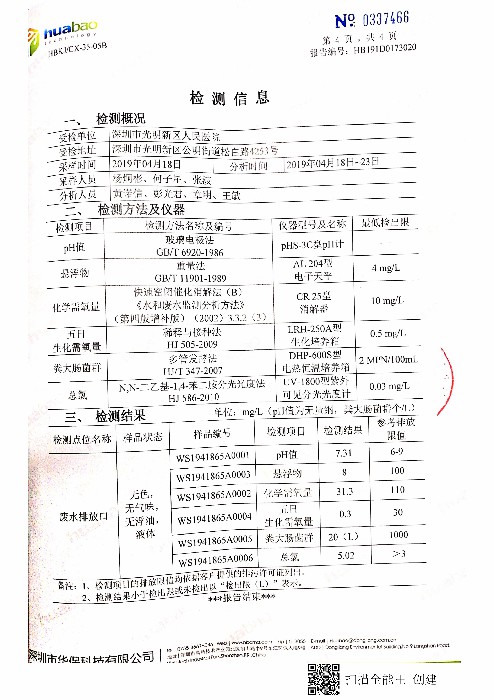 huabao
technology
HBKJ/CX-35-05B
№ 0337466
第 4 页，共 4 页
报告编号：HB191D0173020
检 测 信 息
一、 检测概况
受检单位 深圳市光明新区人民医院
受检地址 深圳市光明新区公明街道松白路4253号
采样时间 2019年04月18日 分析时间 2019年04月18日-23日
采样人员
分析人员
二、 检测方法及仪器
检测项目 检测方法名称及编号 仪器型号及名称 最低检出限
pH值 玻璃电极法 GB/T 6920-1986 pHS-3C型pH计
悬浮物 重量法 GB/T 11901-1989 AL 204型 电子天平 4 mg/L
化学需氧量 快速密闭催化消解法（B）《水和废水监测分析方法》（第四版增补版）（2002）3.3.2（3） CR 25型 消解器 10 mg/L
五日生化需氧量 稀释与接种法 HJ 505-2009 LRH-250A型 生化培养箱 0.5 mg/L
粪大肠菌群 多管发酵法 HJ/T 347-2007 DHP-600S型 电热恒温培养箱 2 MPN/100mL
总氯 N,N-二乙基-1,4-苯二胺分光光度法 HJ 586-2010 UV-1800型紫外可见分光光度计 0.03 mg/L
三、 检测结果 单位：mg/L（pH值为无量纲，粪大肠菌群个/L）
检测点位名称 样品状态 样品编号 检测项目 检测结果 参考排放限值
废水排放口 无色，无气味，无浮油，液体
WS1941865A0001 pH值 7.31 6-9
WS1941865A0003 悬浮物 8 100
WS1941865A0002 化学需氧量 31.3 110
WS1941865A0004 五日生化需氧量 0.3 30
WS1941865A0005 粪大肠菌群 20（L） 1000
WS1941865A0006 总氯 5.02 >3
备注：1、检测项目的排放限值均依据客户提供的排污许可证列出。
2、检测结果小于检出限或未检出以“检出限（L）”表示。
***报告结束***
深圳市华保科技有限公司
扫描全能王 创建